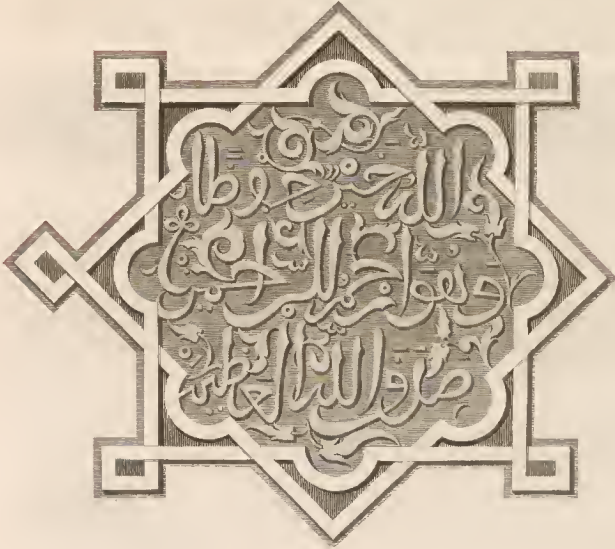 فالله خير حفظا
وهو أرحم الرحمين
صدق الله العظيم